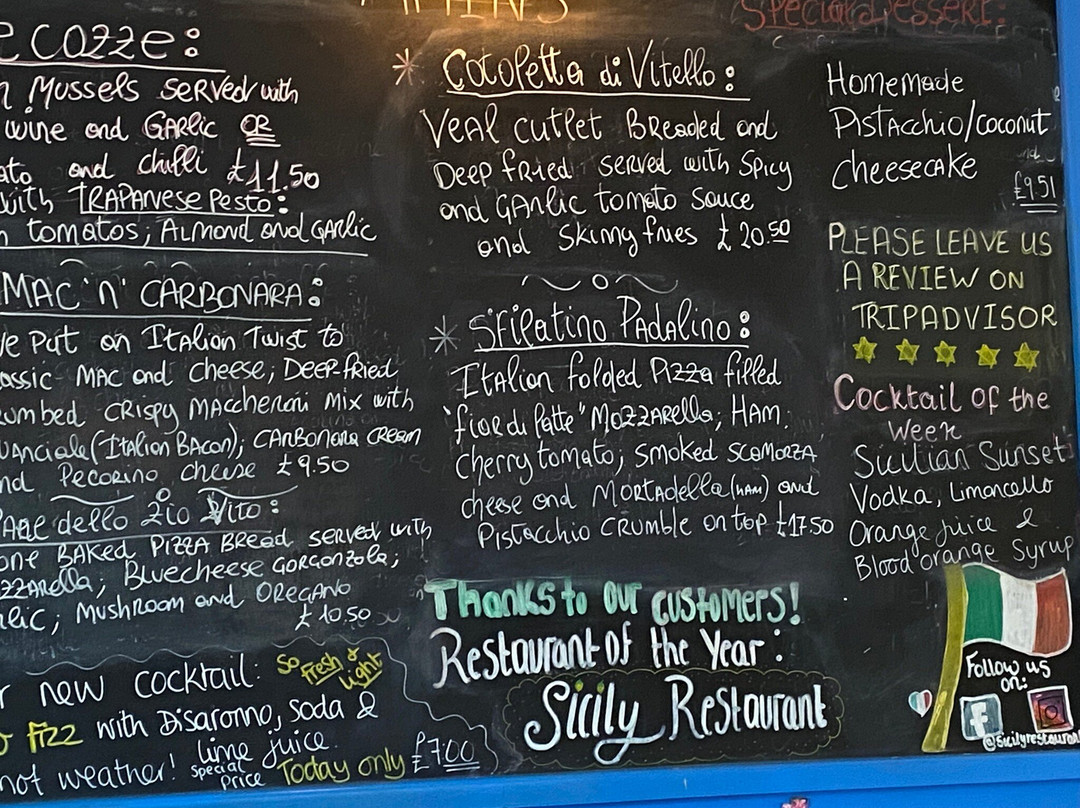 cozze:
Mussels served with
wine and Garlic OR
and chilli £11.50
with TRAPANese Pesto:
tomatos; Almond and GARlic
MAC 'n' CARBONARA:
Put an Italian Twist to
MAC and cheese; Deep-fried
CRispy MAccheroni Mix with
(Italian BAcon); CARbonara cream
Pecorino cheese £9.50
dello Zio Vito:
BAKED PIZZA BRead served with
Bluecheese GORGONzola;
Mushroom and OREGANO
£10.50
new cocktail: So fresh & light
Fizz with Disarorno, Soda &
lime juice.
hot weather! Special Price Today only £7.00
MAINS
* Cotoletta di Vitello:
VEAL cutlet BReaded and
Deep fRied served with Spicy
and GARlic tomato sauce
and skinny fries £20.50
* Sfilatino Padalino:
Italian folded Pizza filled
"fior di latte" MozzARella; HAM;
cherry tomato; smoked scamorza
cheese and MORTAdella (HAM) and
Pistacchio CRumble on top £17.50
Thanks to our customers!
Restaurant of the Year:
Sicily Restaurant
Special Dessert:
Homemade
Pistacchio/coconut
cheesecake
£9.51
PLEASE LEAVE US
A REVIEW ON
TRIPADVISOR
Cocktail of the
Week
Sicilian Sunset
Vodka, Limoncello
Orange juice &
Blood orange Syrup
Follow us
on:
f